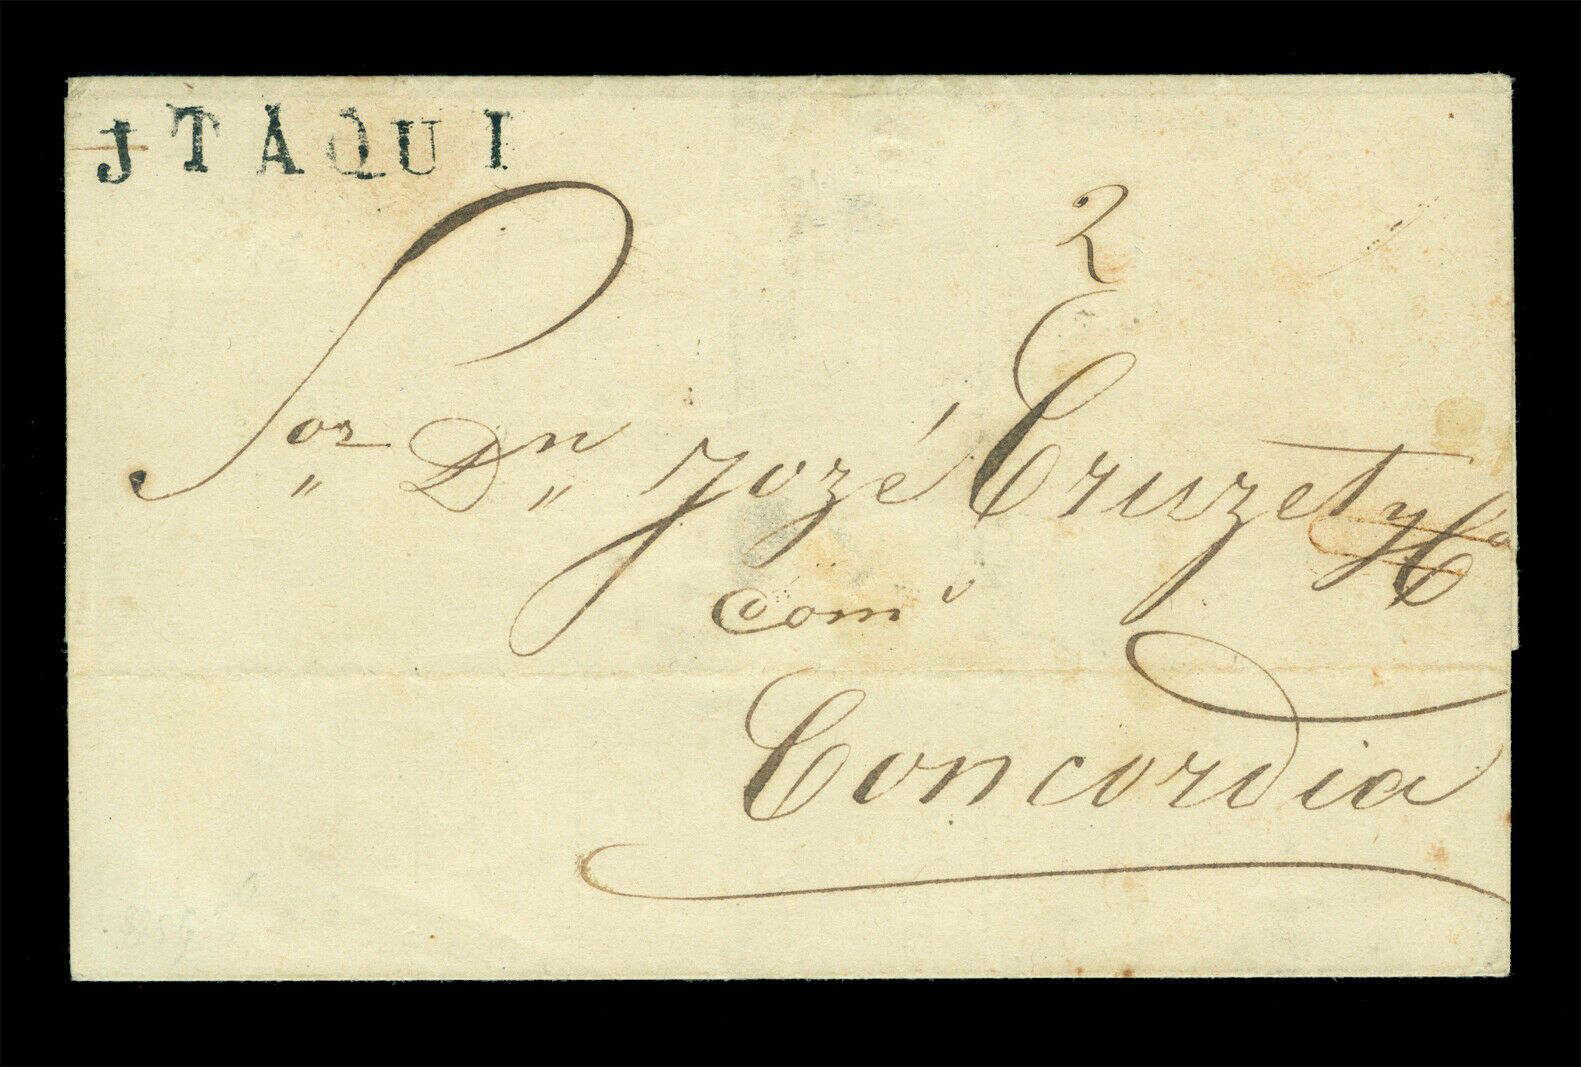 JTAQUI
2
Sor Dn Jozé Cruzet y Ca
Com
Concordia